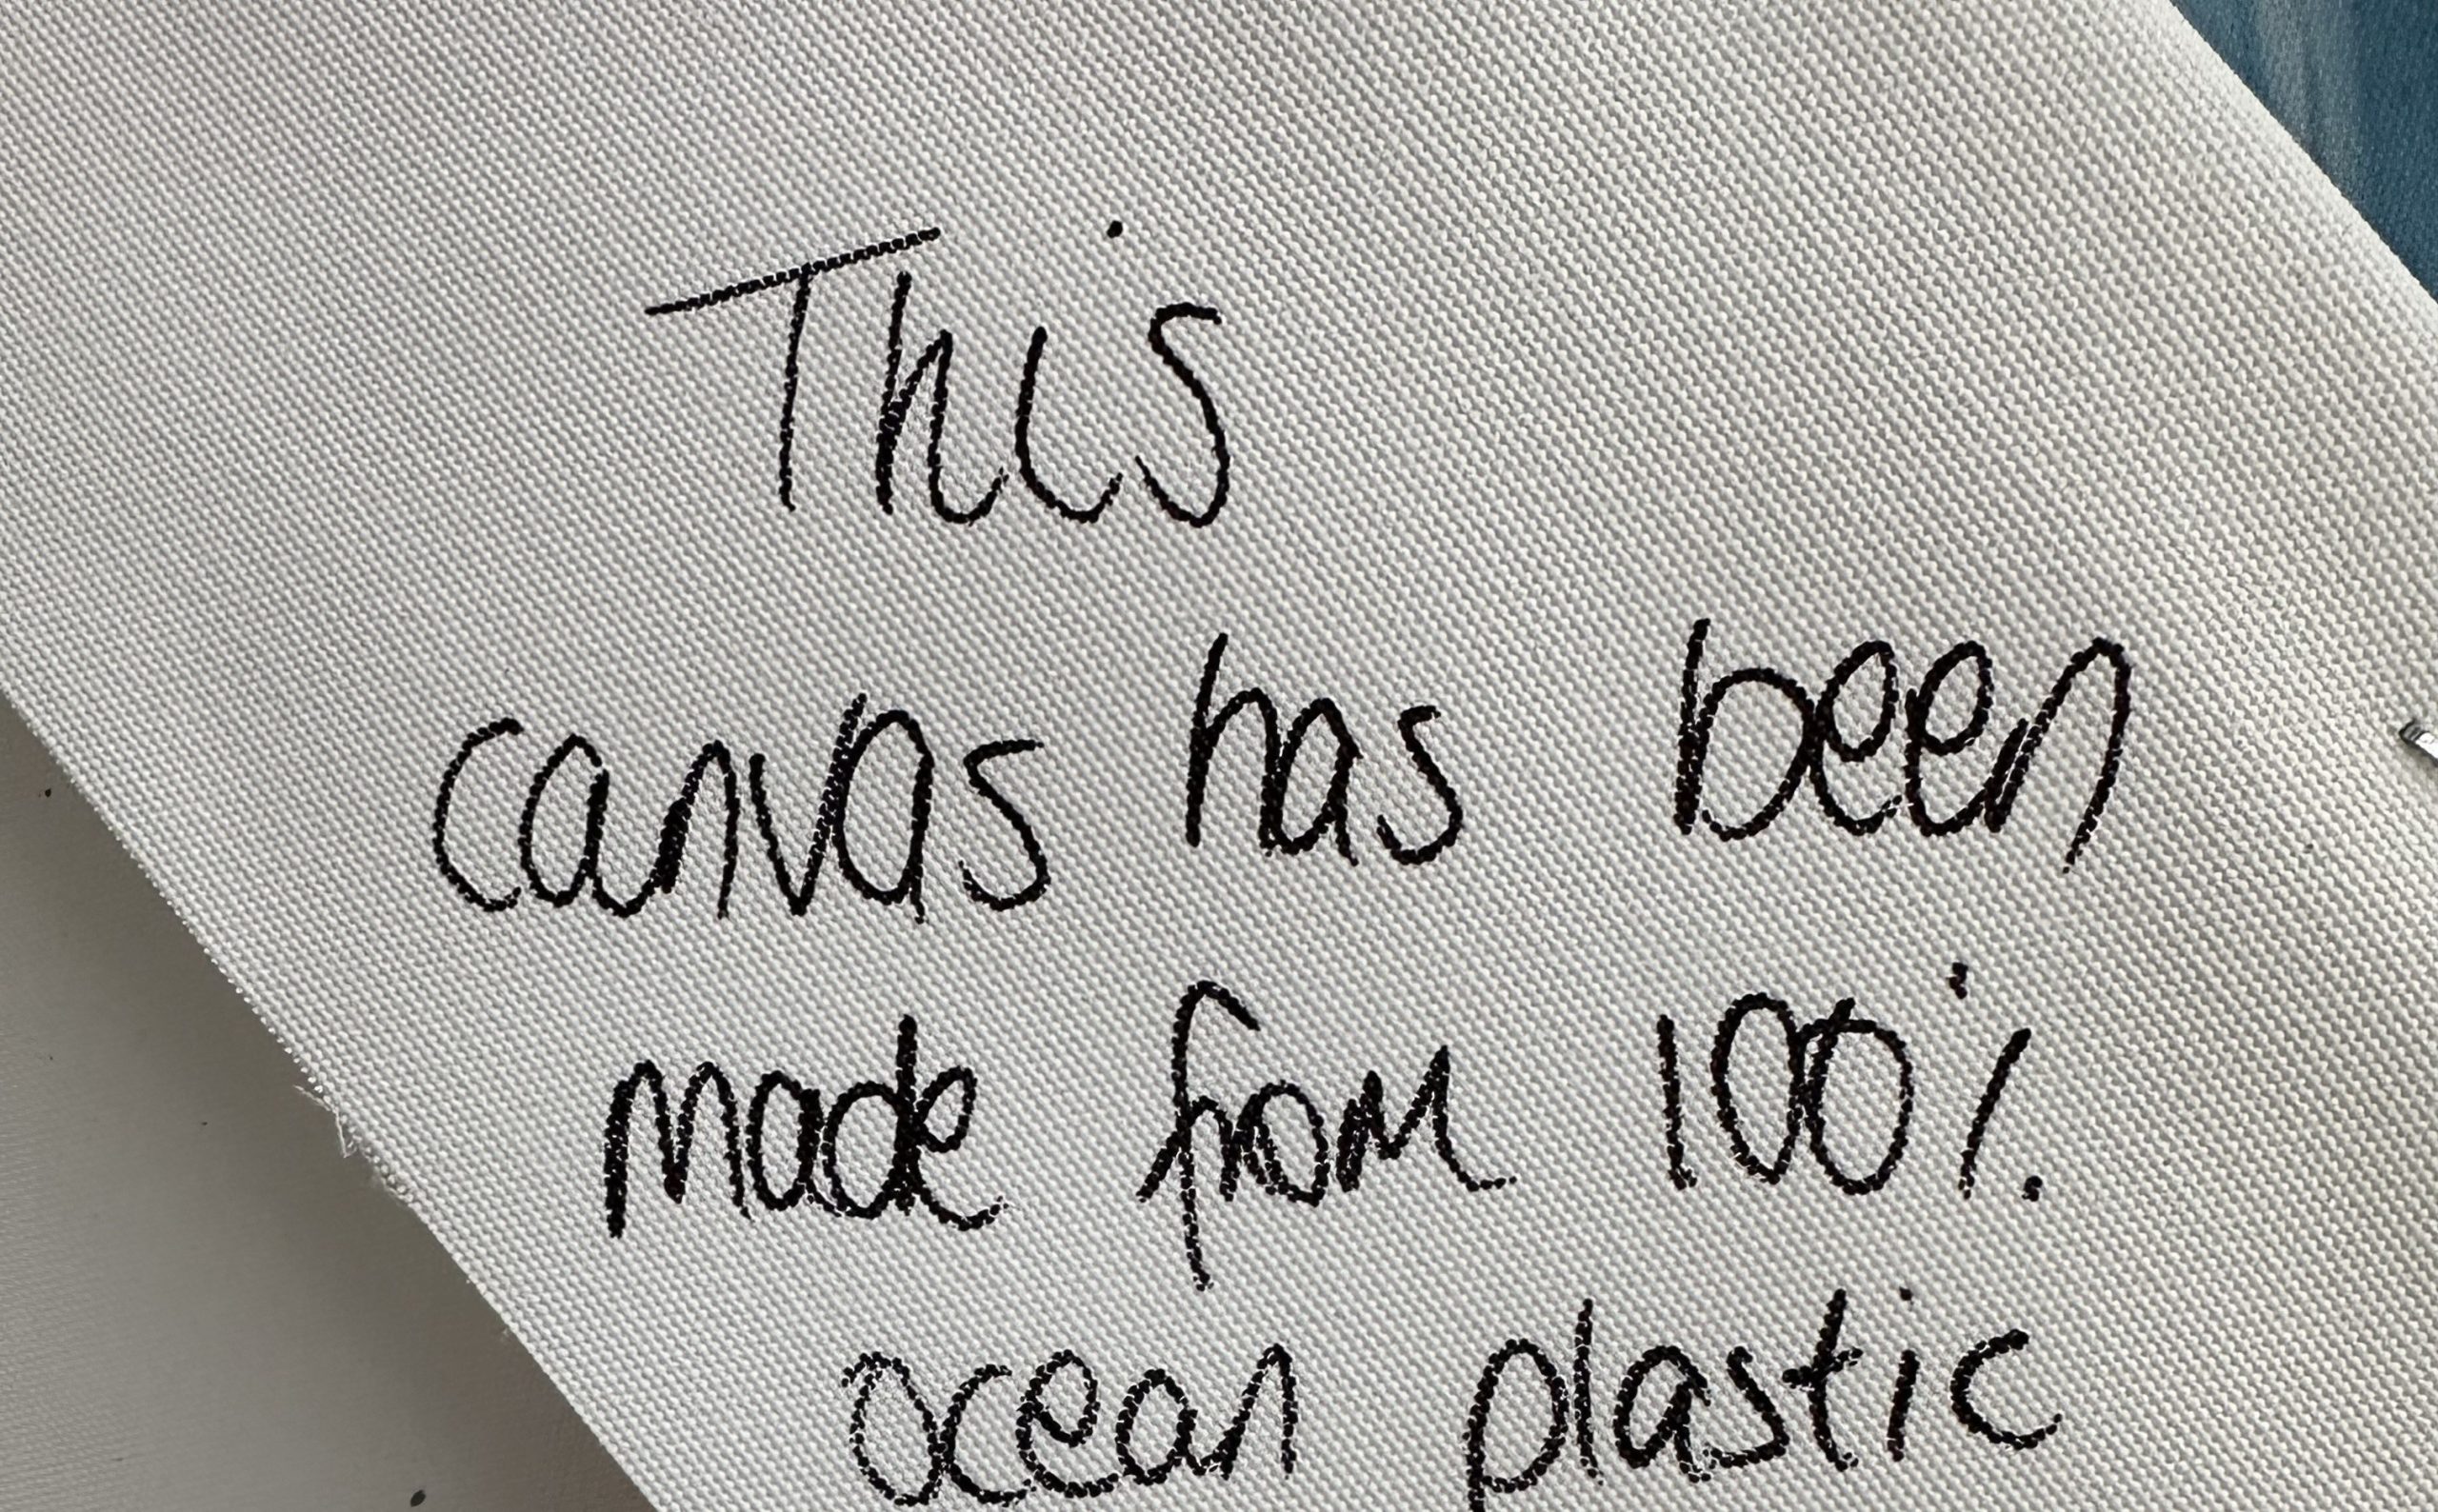 This
canvas has been
made from 100%
ocean plastic